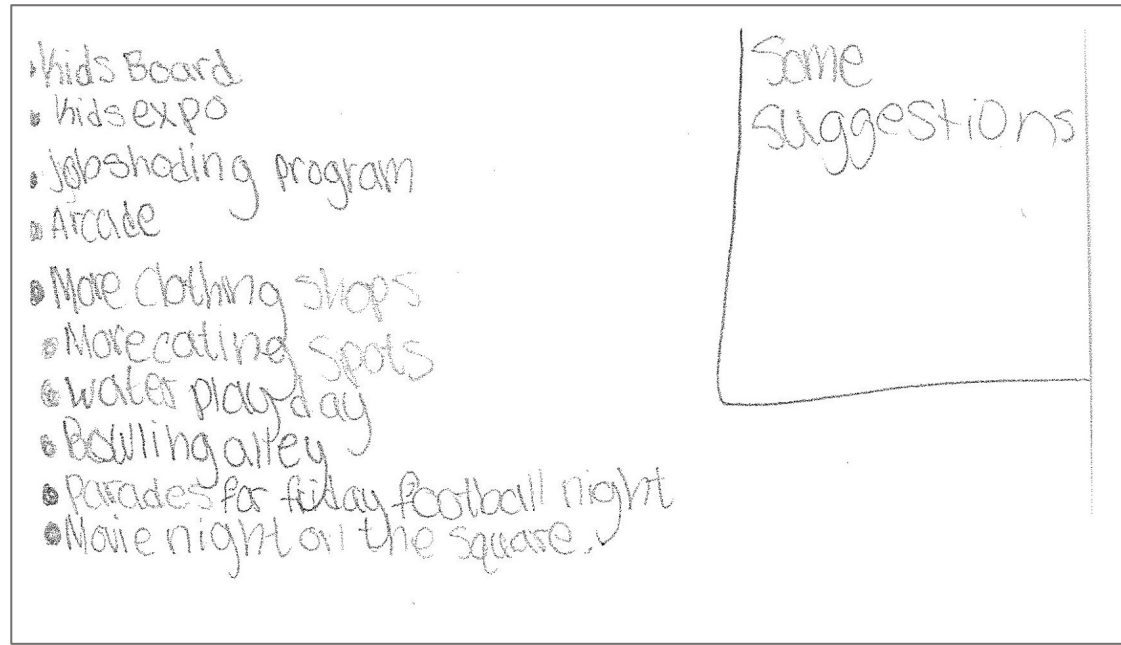 • Kids Board
• Kids expo
• jobshoding program
• Arcade
• More clothing shops
• More eating spots
• water play day
• Bowling alley
• Parades for friday football night
• Movie night on the square.
Some
suggestions